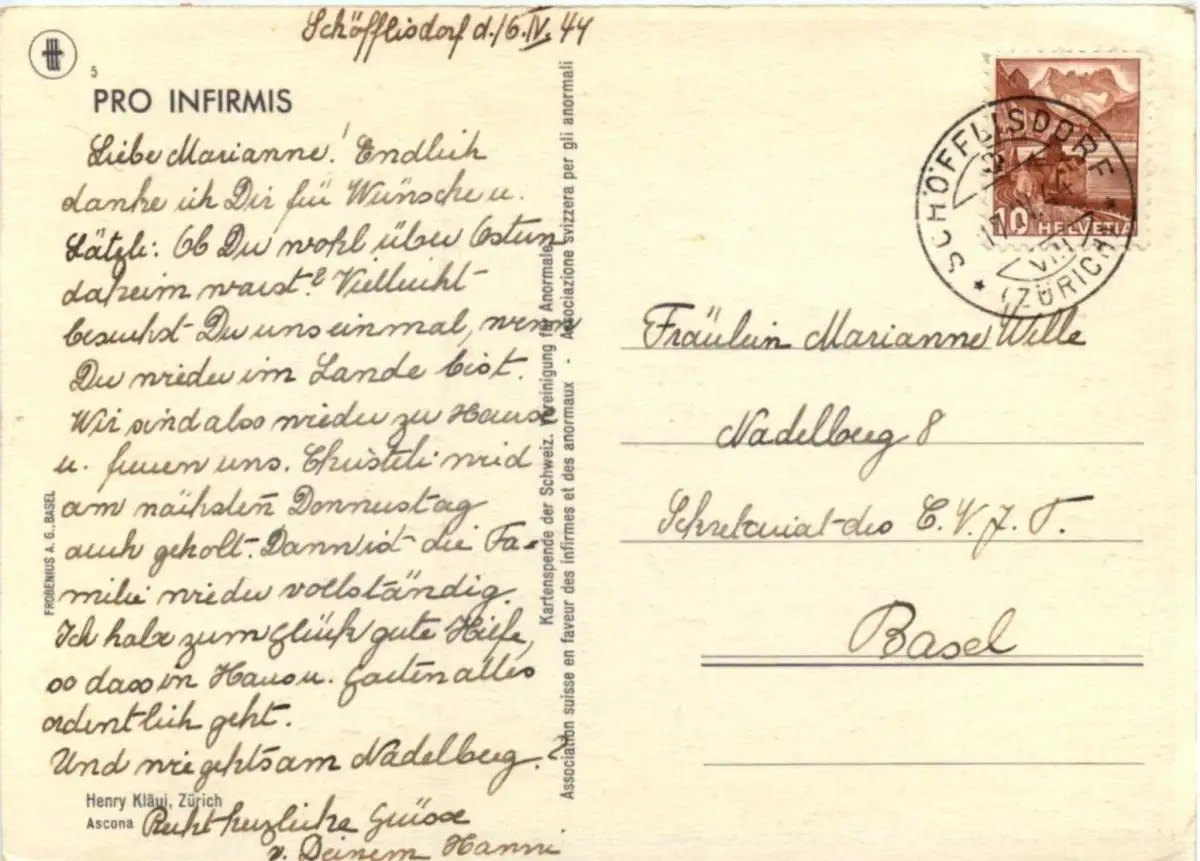 Schöfflisdorf d. 16. IV. 44
5
PRO INFIRMIS
Liebe Marianne! Endlich
danke ich Dir für Wünsche u.
Lätzli: Ob Du wohl über Ostern
daheim warst? Vielleicht
besuchst Du uns einmal, wenn
Du wieder im Lande bist.
Wir sind also wieder zu Hause
u. freuen uns. Christeli wird
am nächsten Donnerstag
auch geholt. Dann ist die Fa-
milie wieder vollständig.
Ich habe zum Glück gute Hilfe,
so dass in Haus u. Garten alles
ordentlich geht.
Und wie geht's am Nadelberg?
Recht herzliche Grüsse
v. Deinem Hanni.
Henry Kläui, Zürich
Ascona
FROBENIUS A. G. BASEL
Kartenspende der Schweiz. Vereinigung für Anormale
Association suisse en faveur des infirmes et des anormaux - Associazione svizzera per gli anormali
10 HELVETIA
SCHÖFFLISDORF
(ZÜRICH)
Fräulein Marianne Wille
Nadelberg 8
Sekretariat des C. V. J. T.
Basel